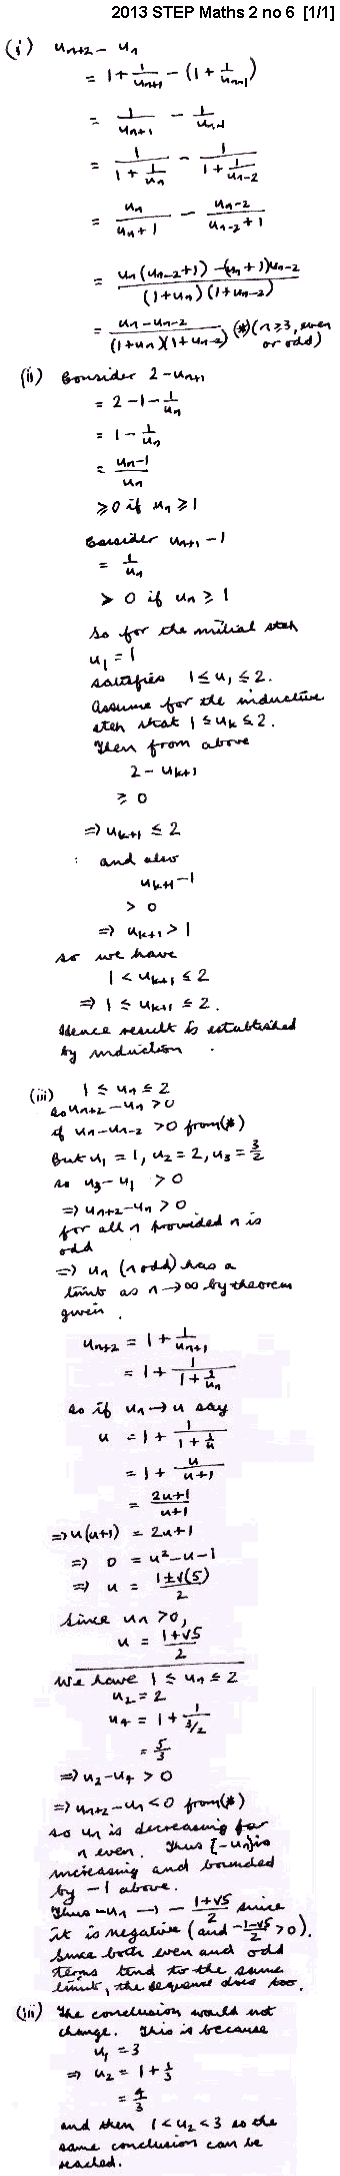 2013 STEP Maths 2 no 6 [1/1]
(i) u_{n+2} - u_n
= 1 + 1/u_{n+1} - (1 + 1/u_{n-1})
= 1/u_{n+1} - 1/u_{n-1}
= 1/(1 + 1/u_n) - 1/(1 + 1/u_{n-2})
= u_n/(u_n + 1) - u_{n-2}/(u_{n-2} + 1)
= (u_n(u_{n-2}+1) - (u_n+1)u_{n-2})/((1+u_n)(1+u_{n-2}))
= (u_n - u_{n-2})/((1+u_n)(1+u_{n-2})) (*) (n ≥ 3, even
or odd)
(ii) Consider 2 - u_{n+1}
= 2 - 1 - 1/u_n
= 1 - 1/u_n
= (u_n - 1)/u_n
≥ 0 if u_n ≥ 1
Consider u_{n+1} - 1
= 1/u_n
> 0 if u_n ≥ 1
So for the initial step
u_1 = 1
satisfies 1 ≤ u_1 ≤ 2.
Assume for the inductive
step that 1 ≤ u_k ≤ 2.
Then from above
2 - u_{k+1}
≥ 0
⇒ u_{k+1} ≤ 2
: and also
u_{k+1} - 1
> 0
⇒ u_{k+1} > 1
so we have
1 < u_{k+1} ≤ 2
⇒ 1 ≤ u_{k+1} ≤ 2.
Hence result is established
by induction .
(iii) 1 ≤ u_n ≤ 2
so u_{n+2} - u_n > 0
if u_n - u_{n-2} > 0 from (*)
But u_1 = 1, u_2 = 2, u_3 = 3/2
so u_3 - u_1 > 0
⇒ u_{n+2} - u_n > 0
for all n provided n is
odd
⇒ u_n (n odd) has a
limit as n → ∞ by theorem
given .
u_{n+2} = 1 + 1/u_{n+1}
= 1 + 1/(1 + 1/u_n)
so if u_n → u say
u = 1 + 1/(1 + 1/u)
= 1 + u/(u+1)
= (2u+1)/(u+1)
⇒ u(u+1) = 2u+1
⇒ 0 = u² - u - 1
⇒ u = (1±√(5))/2
Since u_n > 0,
u = (1+√5)/2
We have 1 ≤ u_n ≤ 2
u_2 = 2
u_4 = 1 + 1/(3/2)
= 5/3
⇒ u_2 - u_4 > 0
⇒ u_{n+2} - u_n < 0 from (*)
so u_n is decreasing for
n even. Thus {-u_n} is
increasing and bounded
by -1 above.
Thus -u_n → -(1+√5)/2 since
it is negative (and -(1-√5)/2 > 0).
Since both even and odd
terms tend to the same
limit, the sequence does too.
(iii) The conclusion would not
change. This is because
u_1 = 3
⇒ u_2 = 1 + 1/3
= 4/3
and then 1 < u_2 < 3 so the
same conclusion can be
reached.